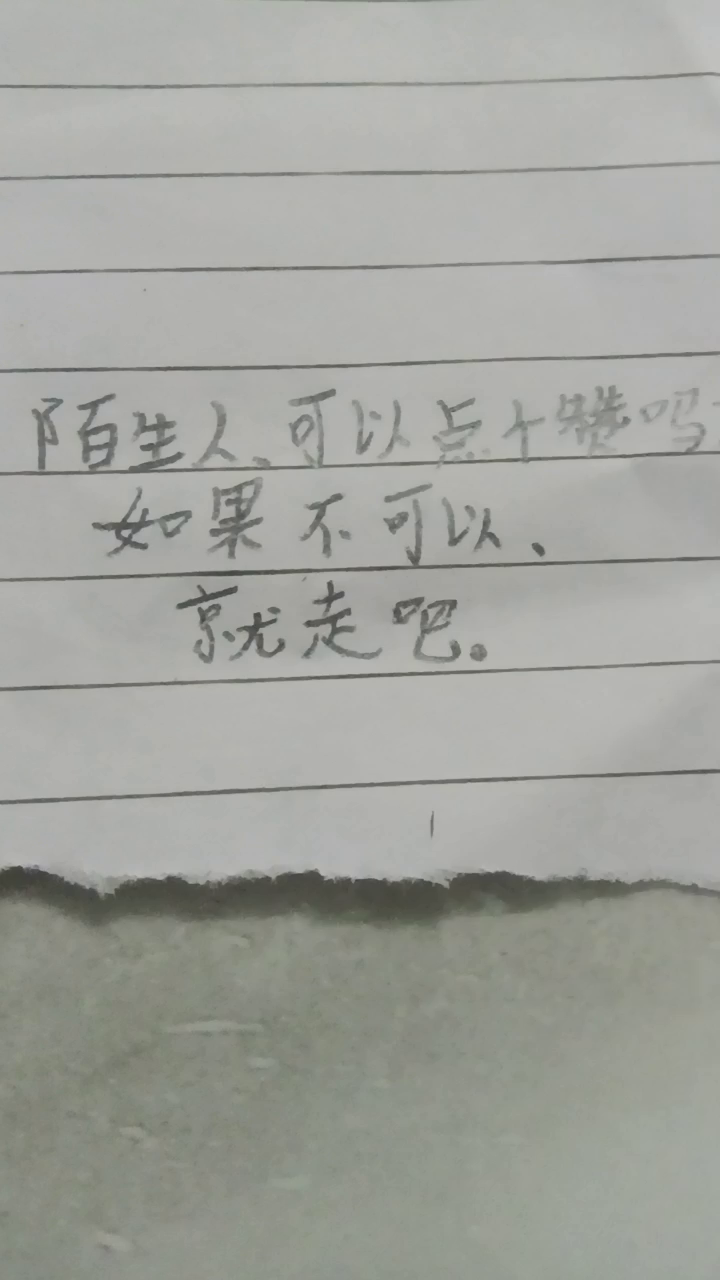 陌生人、可以点个赞吗
如果不可以、
就走吧。